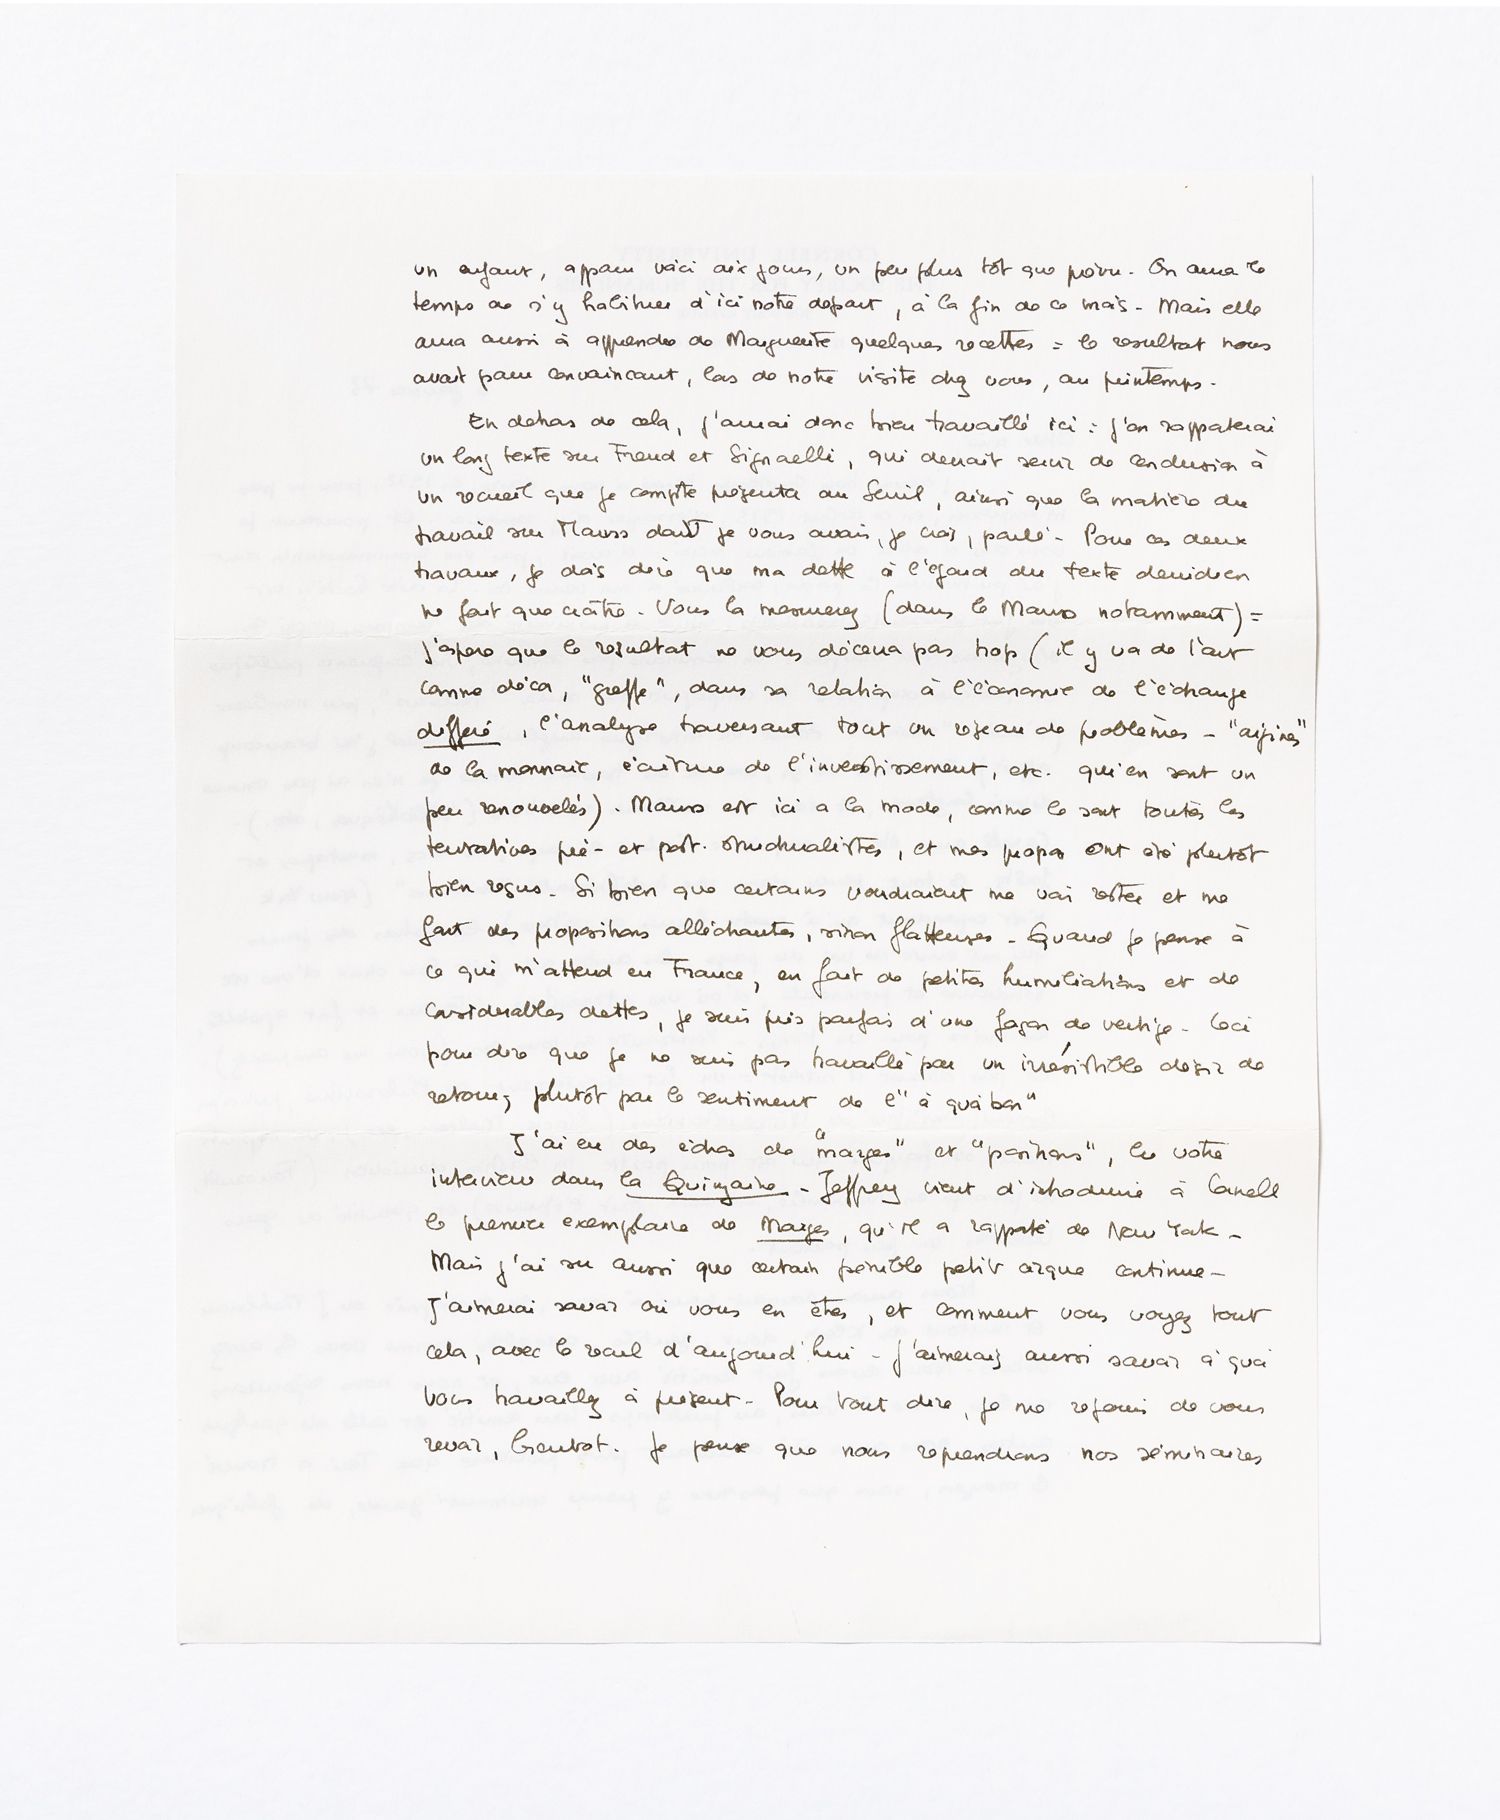 un enfant, apparu voici dix jours, un peu plus tôt que prévu. On aura le
temps de s'y habituer d'ici notre départ, à la fin de ce mois. Mais elle
aura aussi à apprendre de Marguerite quelques recettes : le resultat nous
avait paru convaincant, lors de notre visite chez vous, au printemps.
En dehors de cela, j'aurai donc bien travaillé ici : j'en rapporterai
un long texte sur Freud et Signorelli, qui devrait servir de conclusion à
un recueil que je compte présenter au Seuil, ainsi que la matière du
travail sur Mauss dont je vous avais, je crois, parlé. Pour ces deux
travaux, je dois dire que ma dette à l'égard du texte derridien
ne fait que croître. Vous la mesurerez (dans le Mauss notamment) :
j'espère que le résultat ne vous décevra pas trop (il y va de l'art
comme décor, "greffe", dans sa relation à l'économie de l'échange
différé, l'analyse traversant tout un réseau de problèmes - "origines"
de la monnaie, écriture de l'investissement, etc. qui en sont un
peu renouvelés). Mauss est ici a la mode, comme le sont toutes les
tentatives pré- et post-structuralistes, et mes propos ont été plutôt
bien reçus. Si bien que certains voudraient me voir rester et me
font des propositions alléchantes, sinon flatteuses. Quand je pense à
ce qui m'attend en France, en fait de petites humiliations et de
considerables dettes, je suis pris parfois d'une façon de vertige. Ceci
pour dire que je ne suis pas travaillé par un irrésistible désir de
retour, plutôt par le sentiment de l'"à quoi bon"
J'ai eu des échos de "marges" et "positions", lu votre
interview dans la Quinzaine. Jeffrey vient d'introduire à Cornell
le premier exemplaire de Marges, qu'il a rapporté de New York.
Mais j'ai su aussi que certain pénible petit cirque continue.
J'aimerai savoir où vous en êtes, et comment vous voyez tout
cela, avec le recul d'aujourd'hui. J'aimerais aussi savoir à quoi
vous travaillez à présent. Pour tout dire, je me rejouis de vous
revoir, bientôt. Je pense que nous reprendrons nos séminaires